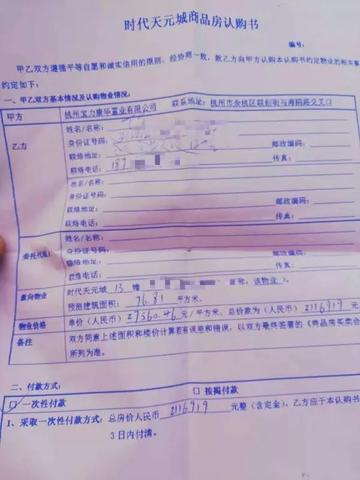 时代天元城商品房认购书
编号:
甲乙双方遵循平等自愿和诚实信用的原则,经协商一致,就乙方向甲方认购本认购书约定物业的相关事
约定如下:
一、甲乙双方基本情况及认购物业情况:
甲方 杭州宝力康华置业有限公司 联系地址: 杭州市余杭区联创街与海曙路交叉口
乙方 姓名/名称:
身份证号码:
联络地址: 邮政编码:
联络电话: 189 传真:
姓名/名称:
身份证号码:
联络地址: 邮政编码:
联络电话: 传真:
委托代理 姓名/名称:
身份证号码:
联络地址: 邮政编码:
联络电话: 传真:
意向物业 时代天元城 13 幢 (下称“该物业”)。
预测建筑面积: 76.81 平方米。
物业价格 单价(人民币) 27560.46 元/平方米, 总价款为(人民币) 2116919 元
备注 双方同意上述面积和楼价计算若有误差和错误, 以双方最终签署的《商品房买卖合
所列为准。
二、付款方式:
☑一次性付款 □按揭付款
1、采取一次性付款方式: 总房价人民币 2116919 元整(含定金), 乙方应于本认购书
3日内付清。